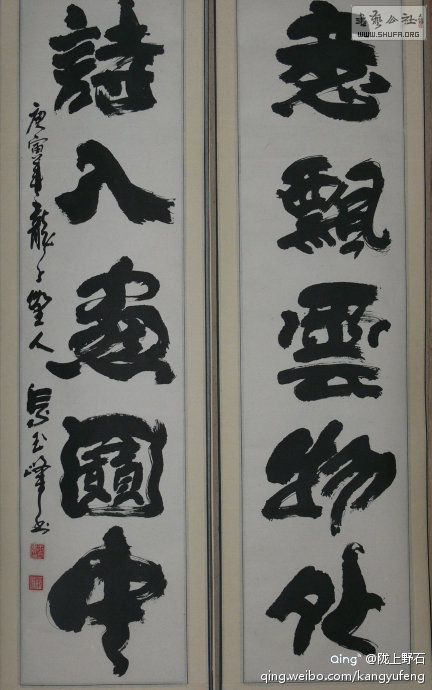 意飄雲物外
詩入畫圖中
庚寅 龍 人 玉峰书
書藝公社
WWW.SHUFA.ORG
Qing @陇上野石
qing.weibo.com/kangyufeng